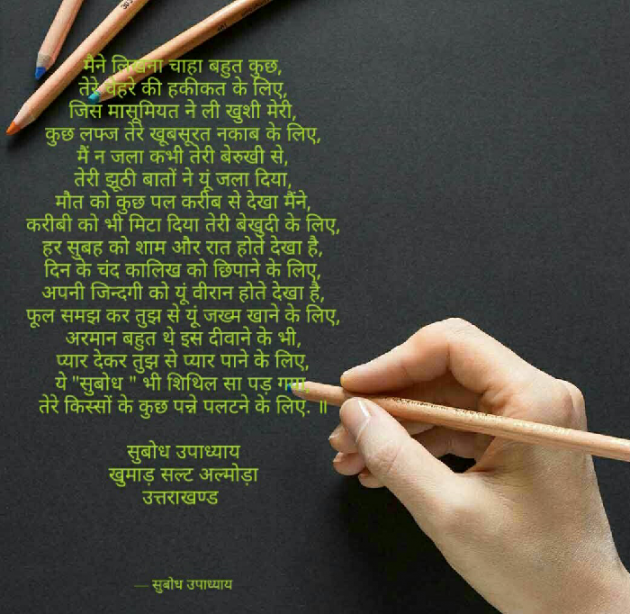 मैने लिखना चाहा बहुत कुछ,
तेरे चेहरे की हकीकत के लिए,
जिस मासूमियत ने ली खुशी मेरी,
कुछ लफ्ज तेरे खूबसूरत नकाब के लिए,
मैं न जला कभी तेरी बेरुखी से,
तेरी झूठी बातों ने यूं जला दिया,
मौत को कुछ पल करीब से देखा मैंने,
करीबी को भी मिटा दिया तेरी बेखुदी के लिए,
हर सुबह को शाम और रात होते देखा है,
दिन के चंद कालिख को छिपाने के लिए,
अपनी जिन्दगी को यूं वीरान होते देखा है,
फूल समझ कर तुझ से यूं जख्म खाने के लिए,
अरमान बहुत थे इस दीवाने के भी,
प्यार देकर तुझ से प्यार पाने के लिए,
ये "सुबोध " भी शिथिल सा पड़ गया,
तेरे किस्सों के कुछ पन्ने पलटने के लिए. ॥
सुबोध उपाध्याय
खुमाड़ सल्ट अल्मोड़ा
उत्तराखण्ड
— सुबोध उपाध्याय